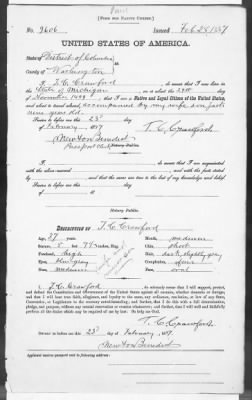 [FORM FOR NATIVE CITIZEN.]
No. 9606. Issued Feb 25 1887
UNITED STATES OF AMERICA.
State of District of Columbia
County of Washington
I, T. C. Crawford, do swear that I was born in
the State of Michigan, on or about the
of November 1849, that I am a Native and Loyal Citizen of the United States,
and about to travel abroad, accompanied by my wife
years old.
Sworn to before me this 23d
of February 1887 T. C. Crawford
Newton Benedict
Notary Public.
do swear that I am acquainted
with the above-named and with the facts stated
by and that the same are true to the best of my knowledge and belief.
Sworn to before me this
day of
Notary Public.
DESCRIPTION OF T. C. Crawford
Age, 37 years. Mouth, medium
Stature, 5 feet inches, Eng. Chin, short
Forehead, high Hair, dark, slightly gray
Eyes, Complexion,
Nose, medium Face, oval
I, T. C. Crawford, do solemnly swear that I will support, protect,
and defend the Constitution and Government of the United States against all enemies, whether domestic or foreign;
and that I will bear true faith, allegiance, and loyalty to the same, any ordinance, resolution, or law of any State,
Convention, or Legislature to the contrary notwithstanding; and further, that I do this with a full determination,
pledge, and purpose, without any mental reservation or evasion whatsoever; and further, that I will well and faithfully
perform all the duties which may be required of me by law. So help me God.
T. C. Crawford
Sworn to before me this 23d day of February, 1887.
Newton Benedict
Applicant desires passport sent to following address: